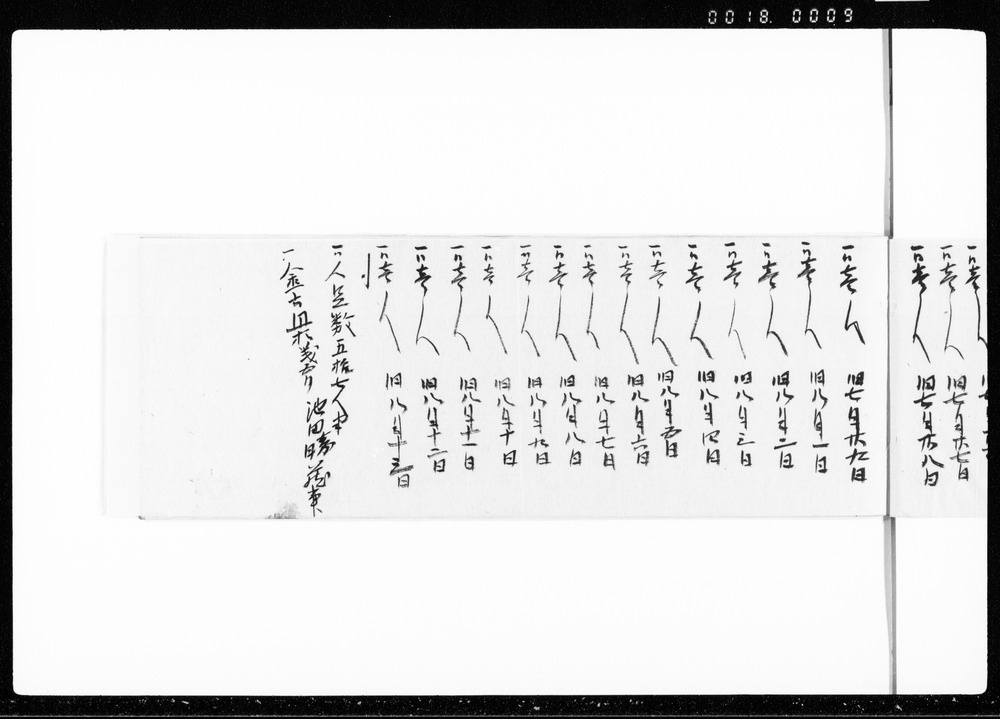 0018. 0009
一同壱人
一同壱人 旧七月廿七日
一同壱人 旧七月廿八日
一同壱人 旧七月廿九日
一同壱人 旧八月一日
一同壱人 旧八月二日
一同壱人 旧八月三日
一同壱人 旧八月四日
一同壱人 旧八月五日
一同壱人 旧八月六日
一同壱人 旧八月七日
一同壱人 旧八月八日
一同壱人 旧八月九日
一同壱人 旧八月十日
一同壱人 旧八月十一日
一同壱人 旧八月十二日
一同壱人 旧八月十三日
〆人足数五拾七人
一金 池田勝